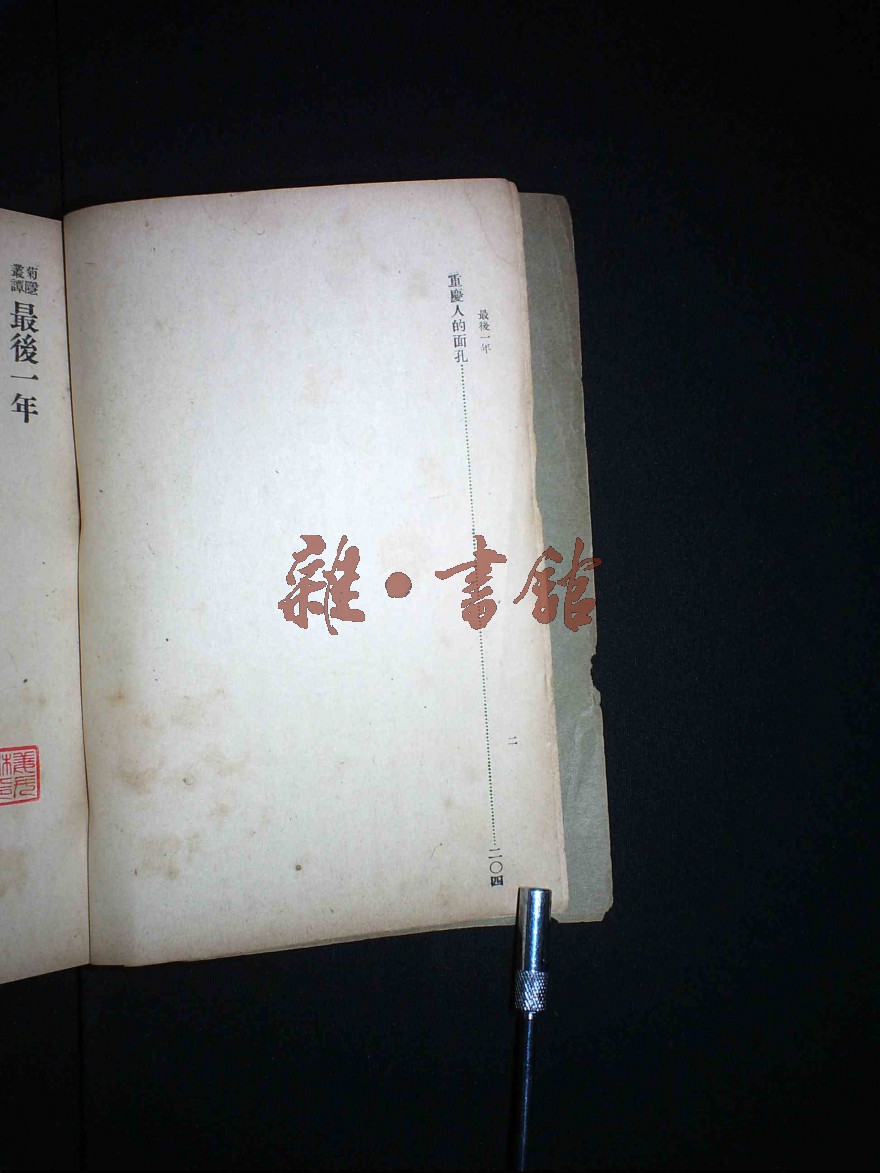 最後一年
重慶人的面孔……二〇四
二
雜·書館
菊隱
叢譚
最後一年